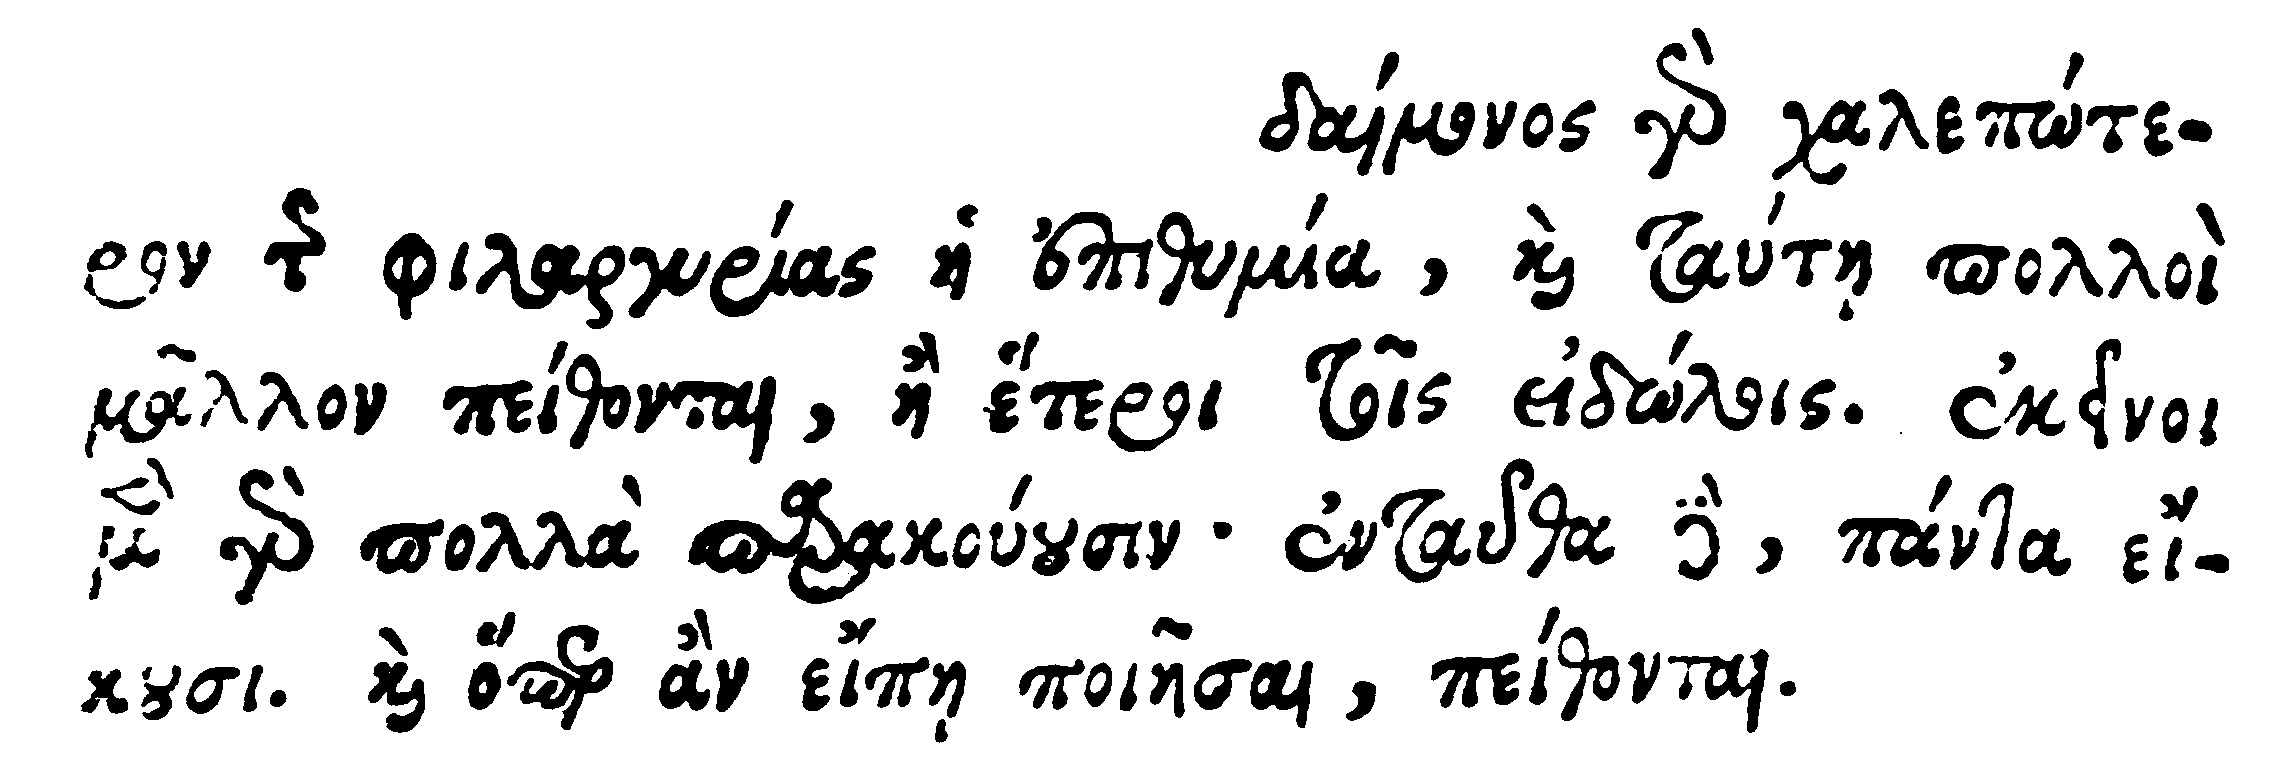 δαίμονος γὰρ χαλεπώτε-
ρον τῆς φιλαργυρίας ἡ ἐπιθυμία, καὶ ταύτῃ πολλοὶ
μᾶλλον πείθονται, ἢ ἕτεροι τοῖς εἰδώλοις. ἐκεῖνοι
μὲν γὰρ πολλὰ παρακούουσιν· ἐνταῦθα δὲ, πάντα εἴ-
κουσι. καὶ ὅπερ ἂν εἴπῃ ποιῆσαι, πείθονται.